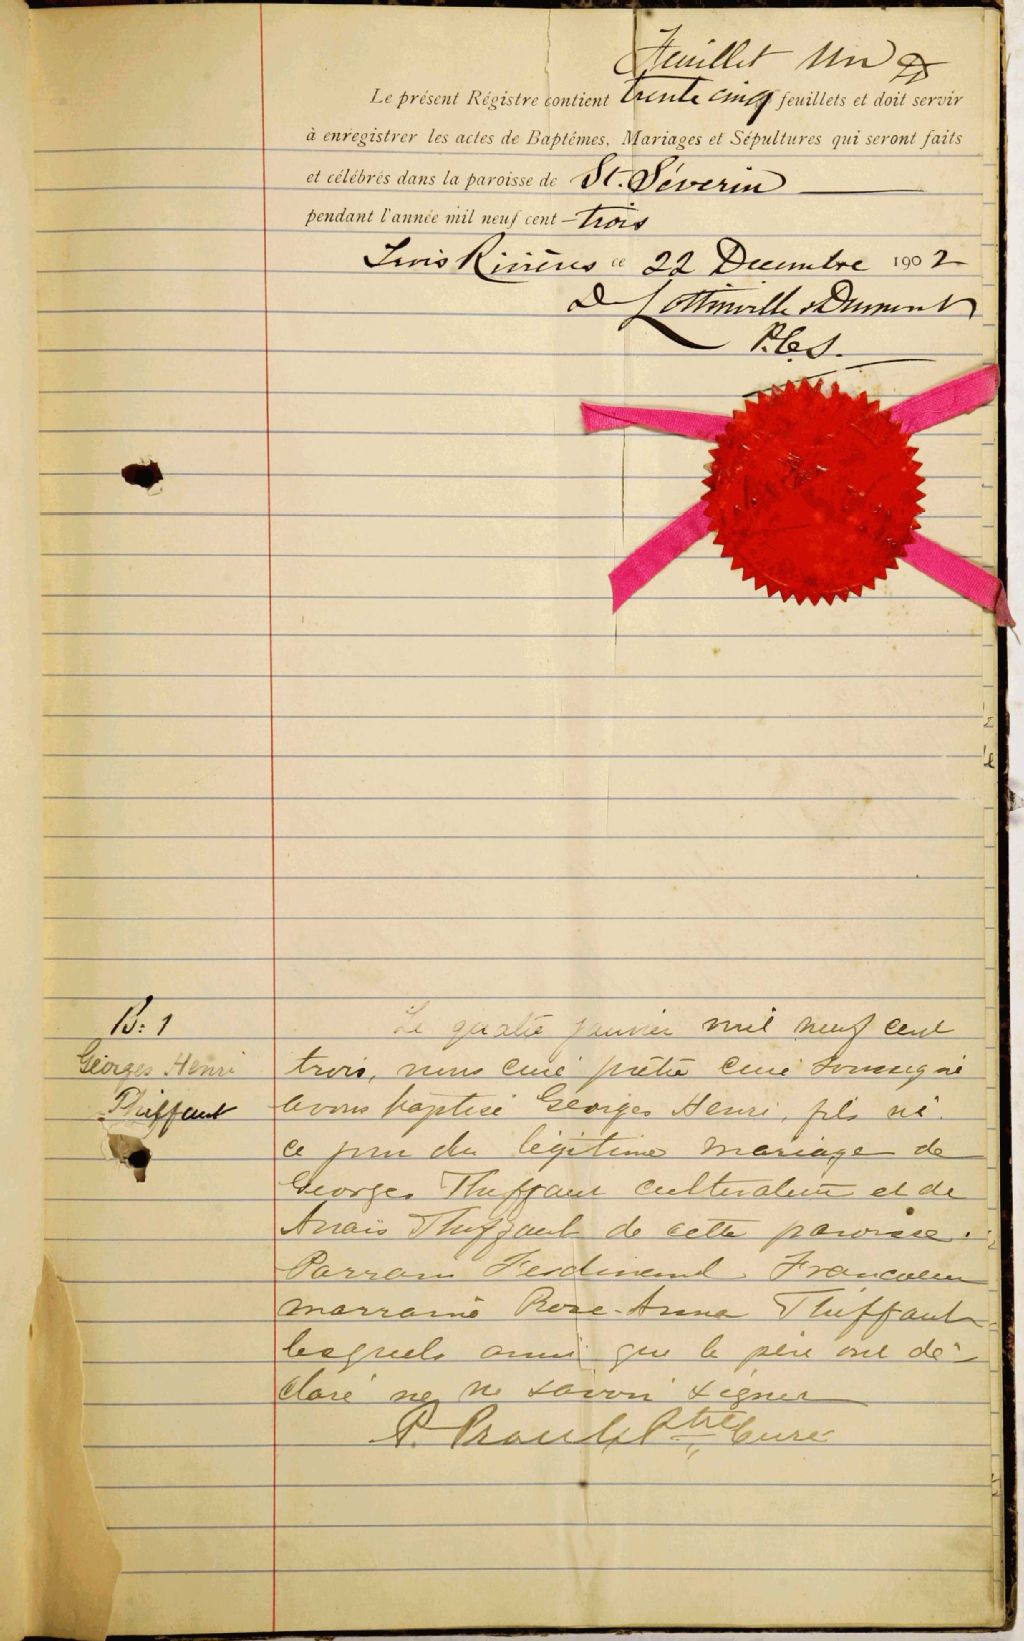 Feuillet Un
Le présent Régistre contient trente cinq feuillets et doit servir
à enregistrer les actes de Baptêmes, Mariages et Sépultures qui seront faits
et célébrés dans la paroisse de St. Séverin
pendant l'année mil neuf cent trois
Trois Rivières ce 22 Decembre 1902
Lottinville & Dumont
P.C.S.
B: 1
Georges Henri
Thiffaut
Le quatre janvier mil neuf cent
trois, nous curé prêtre curé soussigné
avons baptisé Georges Henri, fils né
ce jour du légitime mariage de
Georges Thiffaut cultivateur et de
Anaïs Thiffault de cette paroisse.
Parrain Ferdinand Francoeur
marraine Rose-Anna Thiffault
lesquels ainsi que le père ont dé-
claré ne ne savoir signer
P. Proulx Ptre Curé